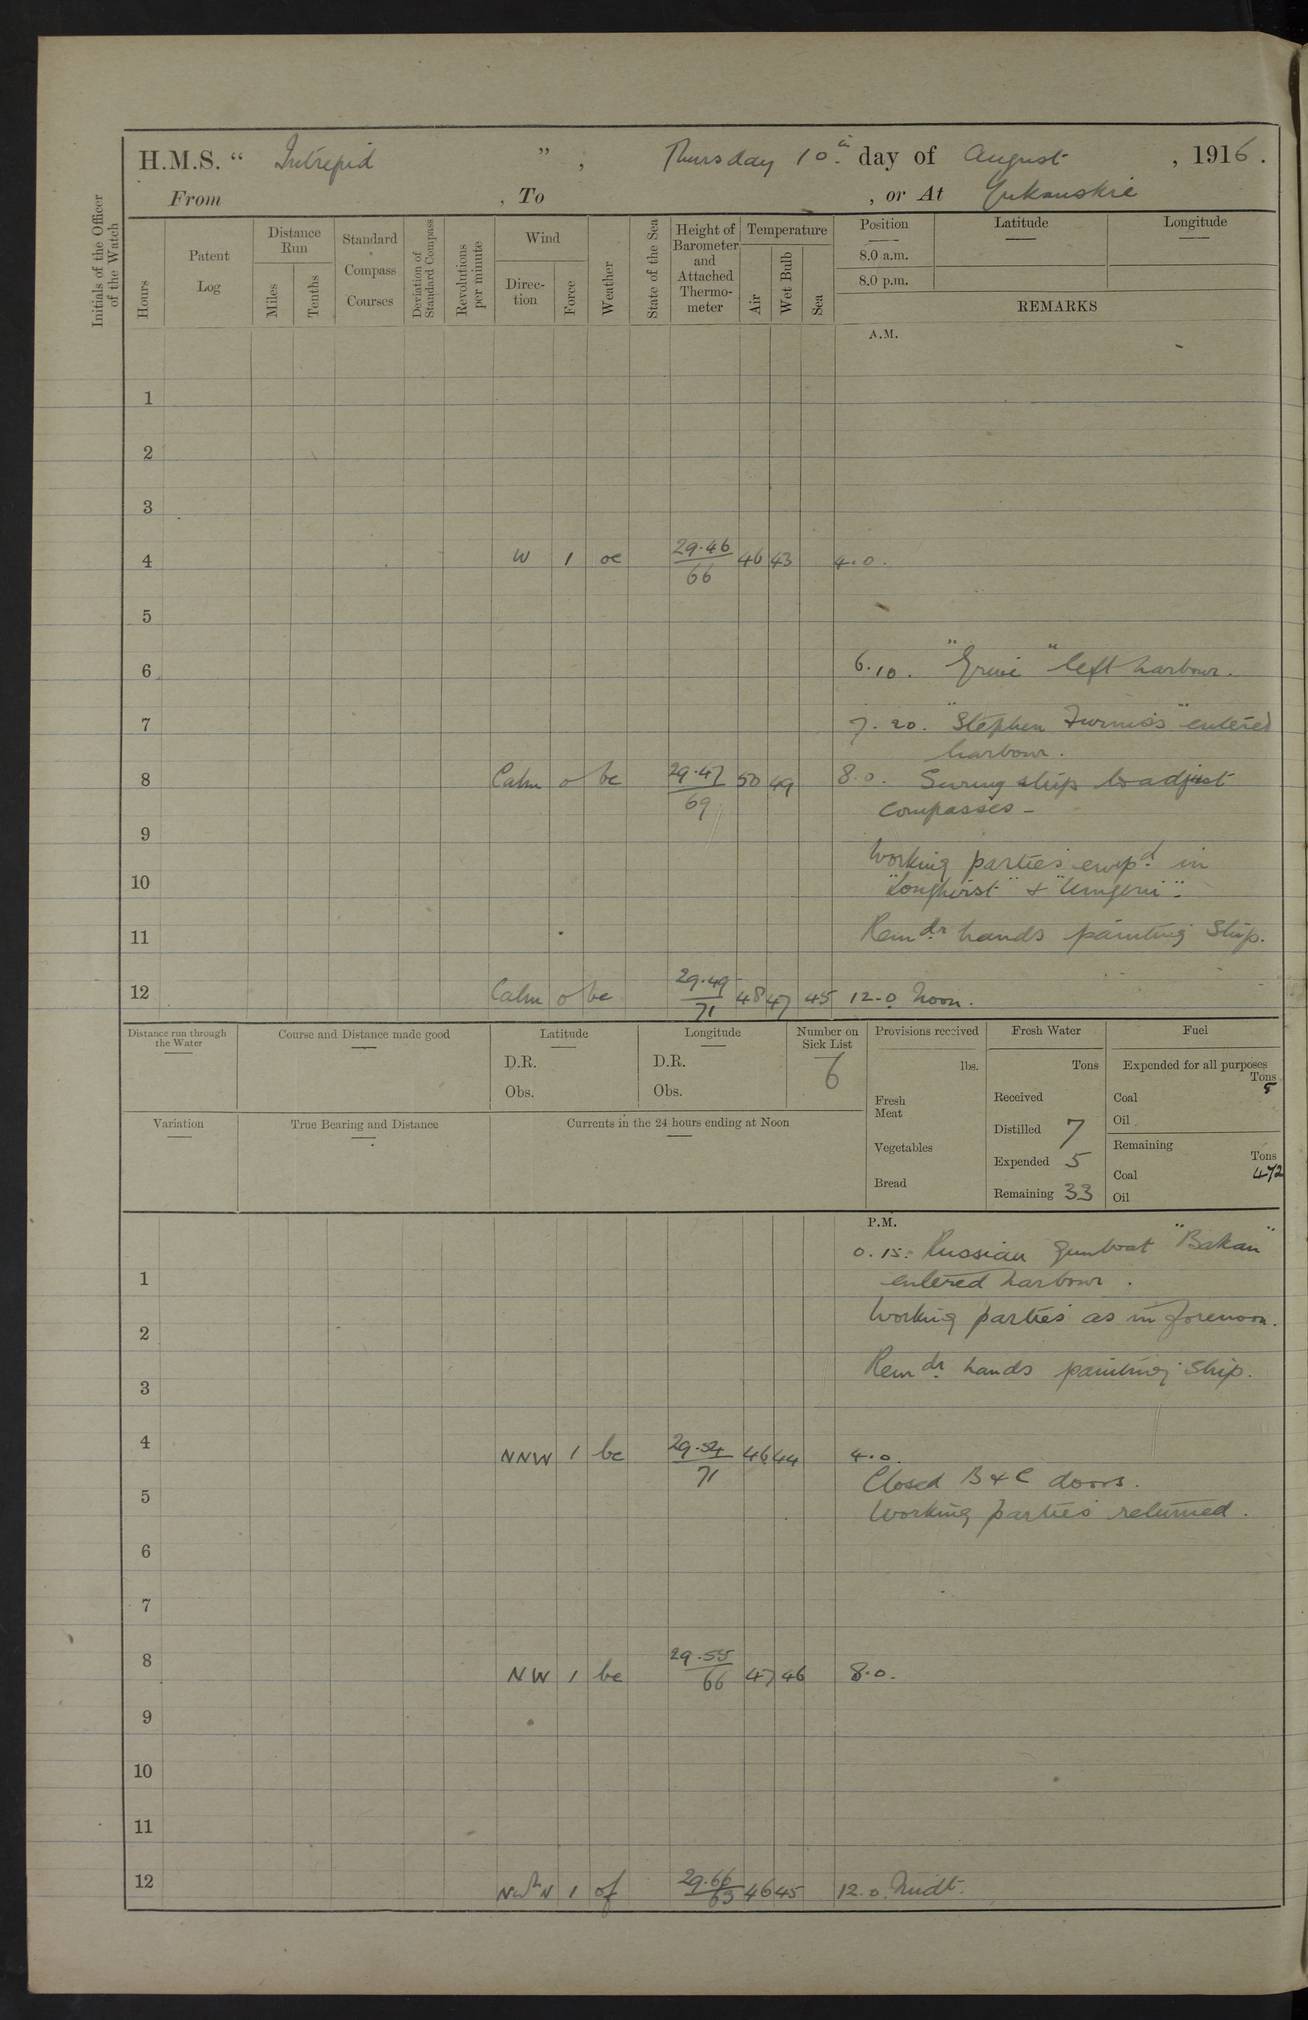 H.M.S. “ Intrepid ” , Thursday 10th day of August , 1916.
From , To , or At Yukanskie
Initials of the Officer of the Watch
Hours
Patent Log
Distance Run
Miles
Tenths
Standard Compass Courses
Deviation of Standard Compass
Revolutions per minute
Wind
Direction
Force
Weather
State of the Sea
Height of Barometer and Attached Thermometer
Temperature
Air
Wet Bulb
Sea
Position
8.0 a.m.
8.0 p.m.
Latitude
Longitude
REMARKS
A.M.
1
2
3
4 W 1 oc 29.46/66 46 43 4.0.
5
6 6.10. " " left harbour.
7 7.20. "Stephen Furness" entered
harbour.
8 Calm 0 bc 29.47/69 50 49 8.0. Swung ship to adjust
compasses -
9
Working parties emp'd. in
10 "Longhirst" & "Umgeni".
11 Remdr. hands painting Ship.
12 Calm 0 bc 29.49/71 48 47 45 12.0 Noon.
Distance run through the Water
Course and Distance made good
Latitude
D.R.
Obs.
Longitude
D.R.
Obs.
Number on Sick List
6
Provisions received
lbs.
Fresh Meat
Vegetables
Bread
Fresh Water
Tons
Received
Distilled 7
Expended 5
Remaining 33
Fuel
Expended for all purposes
Tons
Coal 5
Oil
Remaining
Tons
Coal 472
Oil
Variation
True Bearing and Distance
Currents in the 24 hours ending at Noon
P.M.
0.15. Russian gunboat "Bakan"
1 entered harbour.
Working parties as in forenoon.
2
Remdr. hands painting Ship.
3
4 NNW 1 bc 29.54/71 46 44 4.0.
Closed B & C doors.
5 Working parties returned.
6
7
8 NW 1 bc 29.55/66 47 46 8.0.
9
10
11
12 NWbN 1 of 29.66/63 46 45 12.0. Midt.